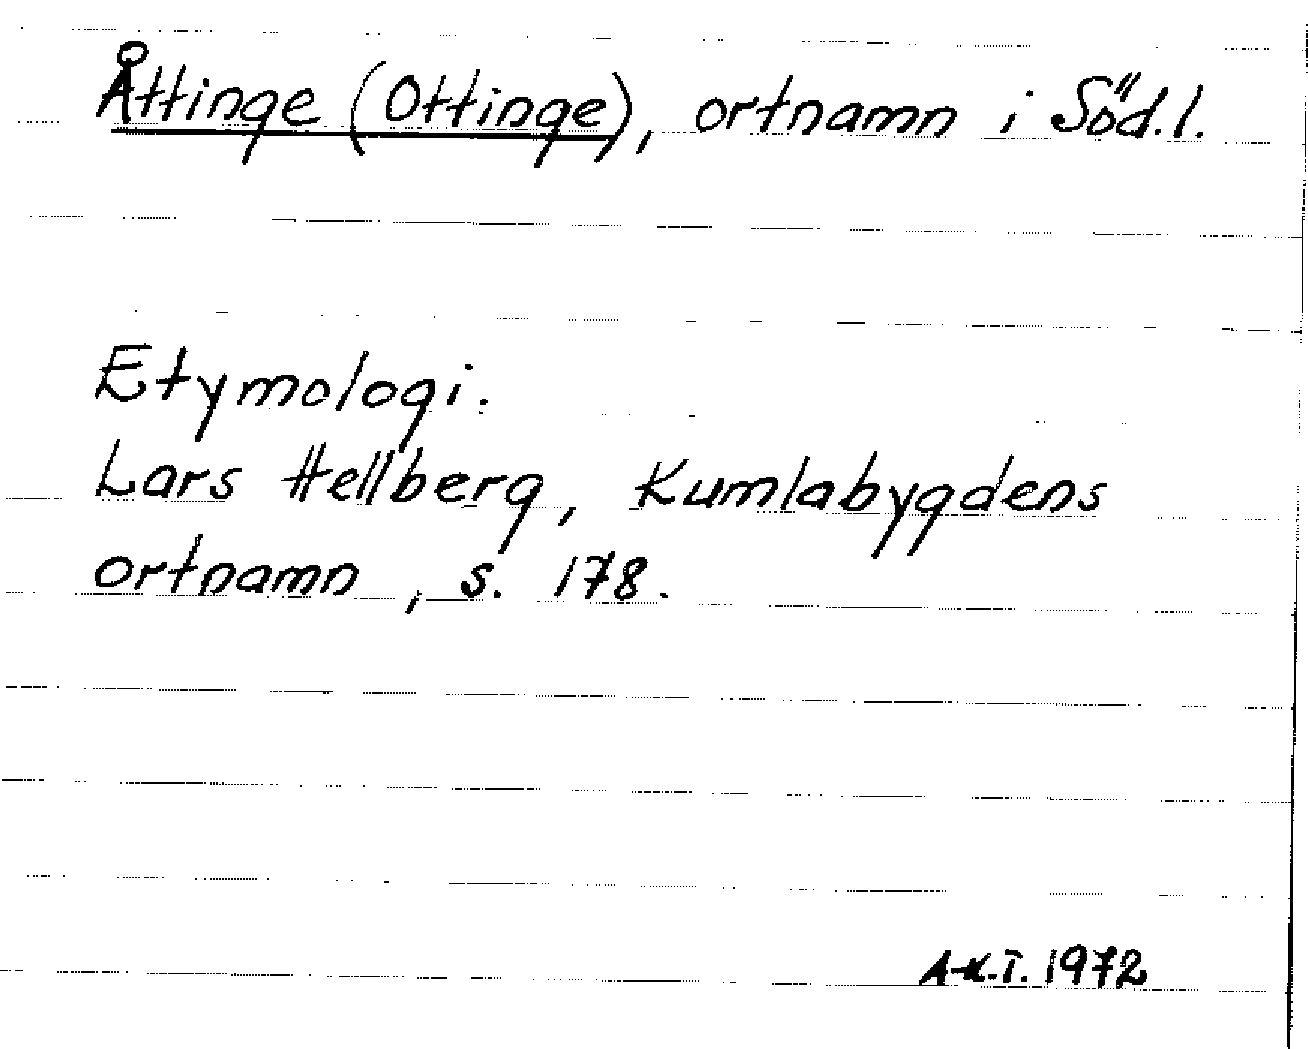 Åttinge (Ottinge), ortnamn i Söd.l.
Etymologi.
Lars Hellberg, Kumlabygdens
ortnamn, s. 178.
A-K.T. 1972